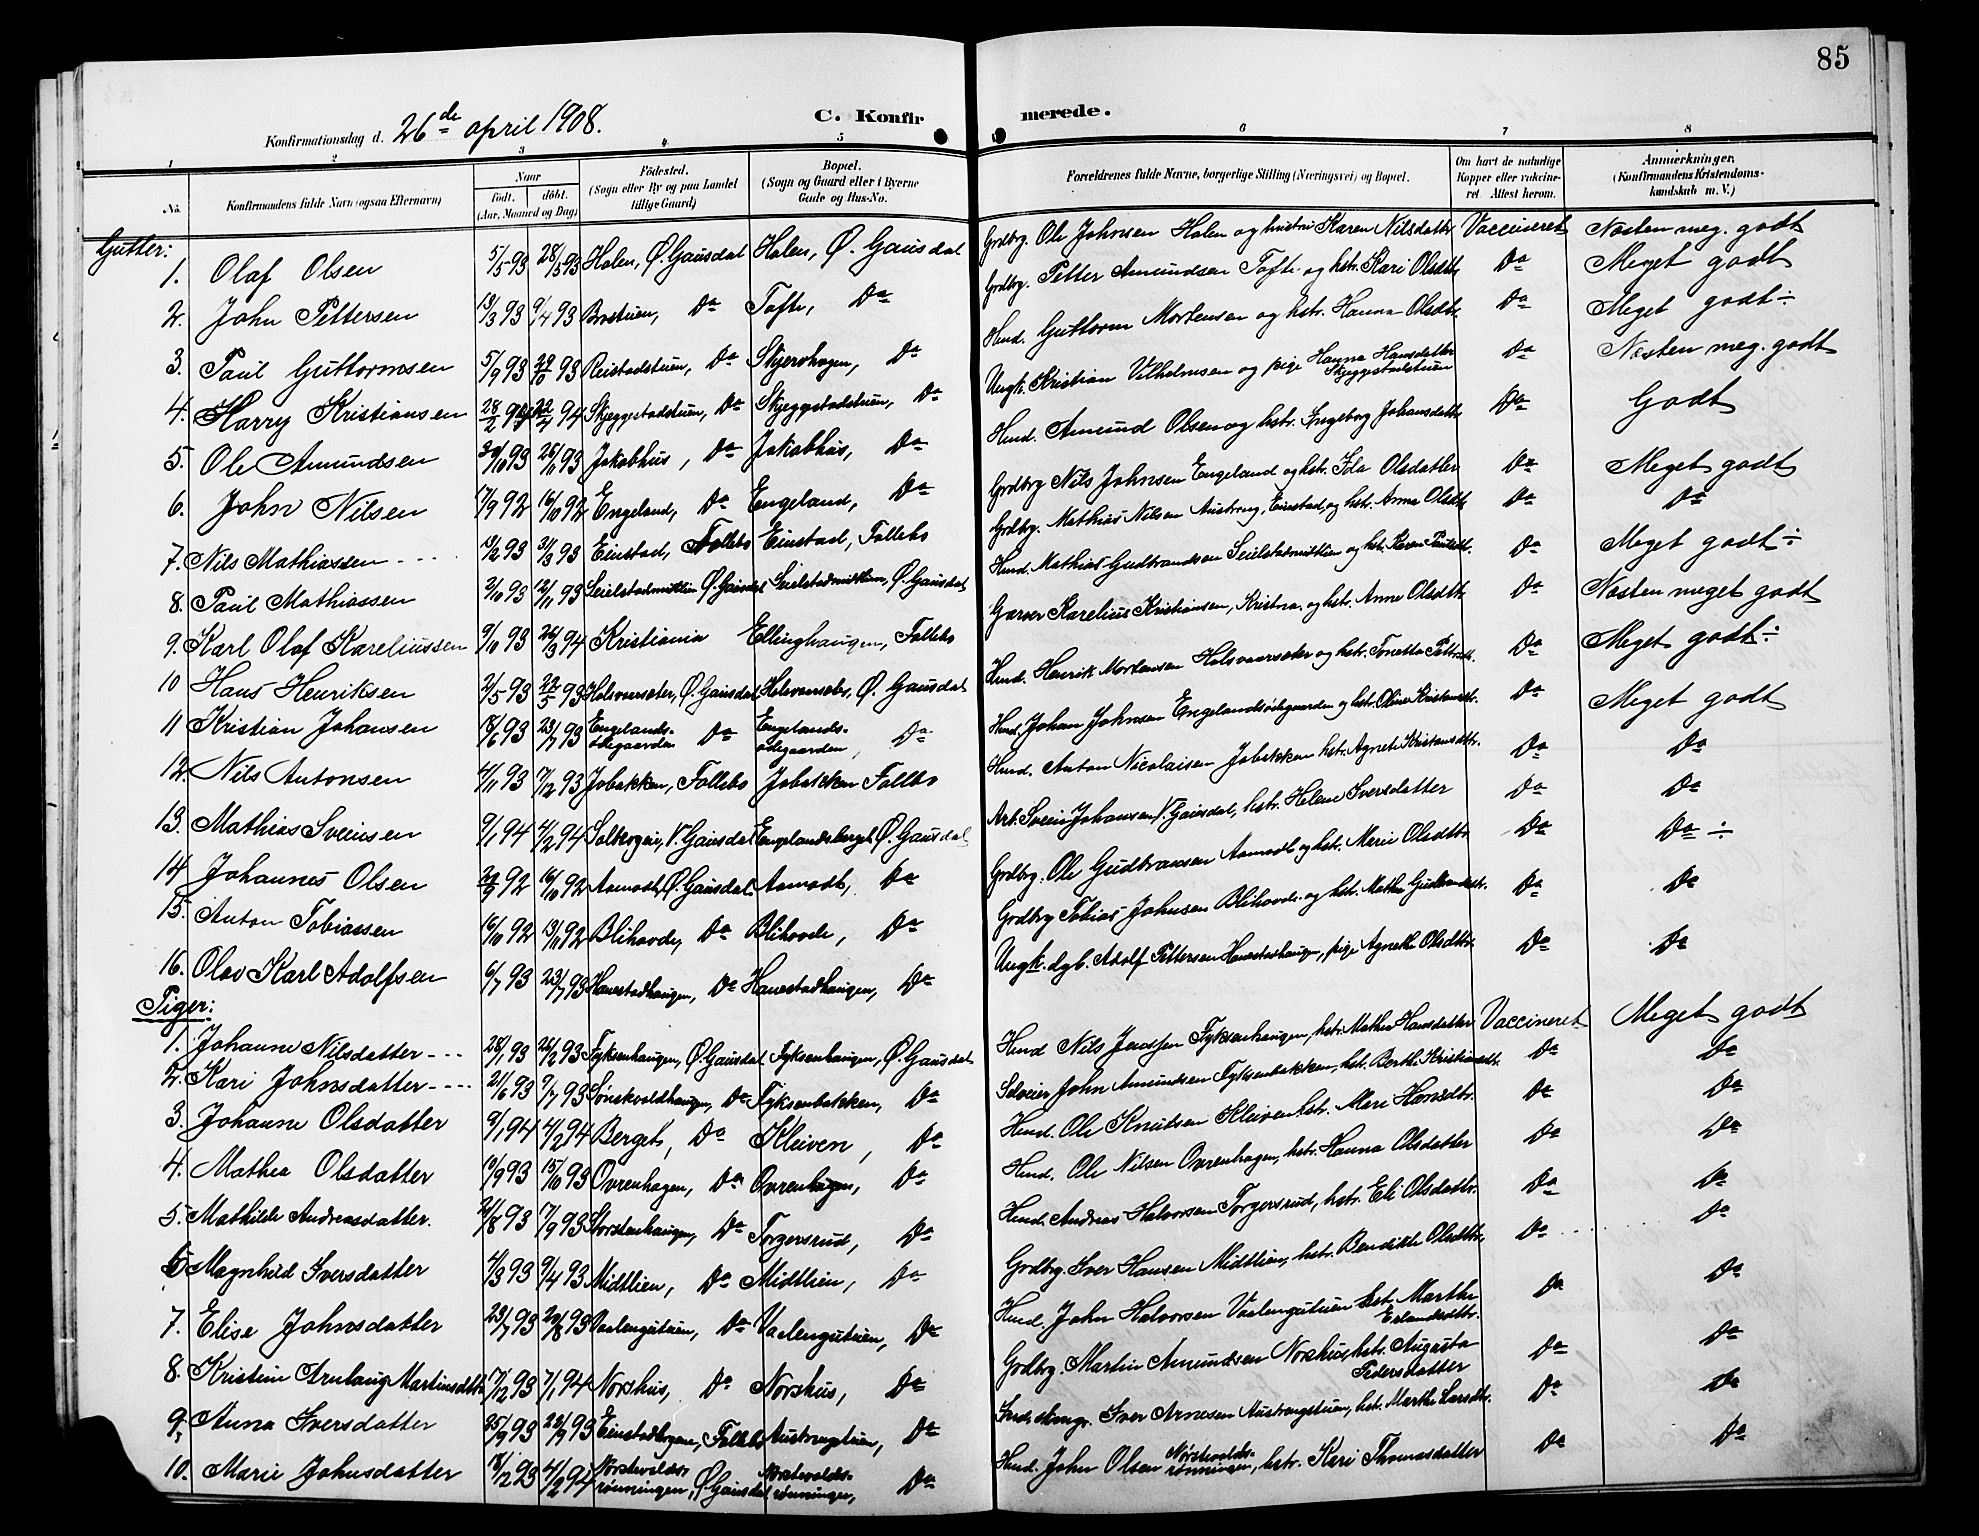 85
Konfirmationsdag d. 26de april 1908.
C. Konfirmerede.
1 2 3 4 5 6 7 8
No.
Konfirmandens fulde Navn (ogsaa Efternavn)
Naar
født. døbt.
(Aar, Maaned og Dag)
Fødested.
(Sogn eller By og paa Landet
tillige Gaard)
Bopæl.
(Sogn og Gaard eller i Byerne
Gade og Hus-No.
Forældrenes fulde Navne, borgerlige Stilling (Næringsvei) og Bopæl.
Om havt de naturlige
Kopper eller vakcine-
ret. Attest herom.
Anmærkninger.
(Konfirmandens Kristendoms-
kundskab m. V.)
Gutter:
1. Olaf Olsen 5/5 93 28/5 93 Holen, Ø. Gausdal Holen, Ø. Gausdal Grdbrg. Ole Johnsen Holen og hustru Karen Nilsdatter Vaccineret Næsten meg. godt
2. John Pettersen 13/3 93 9/4 93 Brostuen, Do Tofte, Do Grdbrg. Petter Amundsen Tofte og hstr. Kari Olsdtr. Do Meget godt
3. Paul Guttormsen 5/9 93 Reistadstuen, Do Skjervhagen, Do Husd. Guttorm Mortensen og hstr. Hanna Olsdtr. Do Meget godt ÷
4. Harry Kristiansen 28/2 94 22/4 94 Skjeggestadstuen, Do Skjeggestadstuen, Do Ungk. Kristian Vilhelmsen og pige Hanna Hansdatter Skjeggestadstuen Do Næsten meg. godt
5. Ole Amundsen 30/10 93 26/11 93 Jakobhus, Do Jakobhus, Do Husd. Amund Olsen og hstr. Ingeborg Johansdatt. Do Godt
6. John Nilsen 17/9 92 16/10 92 Engeland, Do Engeland, Do Grdbrg. Nils Johnsen Engeland og hstr. Ida Olsdatter Do Meget godt
7. Nils Mathiassen 13/2 93 31/3 93 Einstad, Follebo Einstad, Follebo Grdbrg. Mathias Nilsen Austreng, Einstad, og hstr. Anna Olsdtr. Do Do
8. Paul Mathiassen 2/10 93 12/11 93 Seielstadmidtlien Ø. Gausdal Seielstadmidtlien, Ø. Gausdal Husd. Mathias Gudbrandsen Seielstadmidtlien og hstr. Karen Paulsdt. Do Meget godt ÷
9. Karl Olaf Kareliussen 9/10 93 26/3 94 Kristiania Ellinghaugen, Follebo Garver Karelius Kristiansen, Kristna. og hstr. Anne Olsdtr. Do Næsten meget godt
10 Hans Henriksen 2/5 93 22/5 93 Holsvenseter, Ø. Gausdal Holsvenseter, Ø. Gausdal Husd. Henrik Mortensen og hstr. Tonetta Do Meget godt ÷
11 Kristian Johansen 18/6 93 23/7 93 Engelands-ødegaarden Do Engelands-ødegaarden, Do Husd. Johan Johnsen Engelandsødegaarden og hstr. Do Meget godt
12. Nils Antonsen 4/11 93 17/12 93 Jobakken, Follebo Jobakken Follebo Husd. Anton Nicolaisen Jobakken hstr. Agnete Kristensdtr. Do Do
13. Mathias Sveinsen 9/1 94 4/2 94 V. Gausdal Engelandsberget, Ø. Gausdal Arb. Svein Johansen V. Gausdal, hstr. Helene Iversdatter Do Do
14 Johannes Olsen 92 16/10 92 Aamodt, Ø. Gausdal Aamodt, Do Grdbrg. Ole Gudbransen Aamodt og hstr. Marie Olsdtr. Do Do ÷
15. Anton Tobiassen 16/10 92 13/11 92 Blihovde, Do Blihovde, Do Grdbrg Tobias Johnsen Blihovde og hstr. Mathea Gudbrandsdtr. Do Do
16. Olav Karl Adolfsen 6/7 93 23/7 93 Hanestadhaugen, Do Hanestadhaugen, Do Ungk. dgb. Adolf Pettersen Hanestadhaugen, pige Agnethe Olsdtr. Do Do
Piger:
1. Johanne Nilsdatter 28/1 93 26/2 93 Fyksenhaugen, Ø. Gausdal Fyksenhaugen, Ø. Gausdal Husd Nils Fyksenhaugen, hstr. Mathea Hansdatter Vaccineret Meget godt
2. Kari Johnsdatter 21/6 93 9/7 93 Do Fyksenbakken, Do Selveier John Amundsen Fyksenbakken, hstr. Berthe Kristiansdt. Do Do
3. Johanne Olsdatter 9/1 94 4/2 94 Berget, Do Kleiven, Do Husd. Ole Knudsen Kleiven hstr. Mari Hansdtr. Do Do
4. Mathea Olsdatter 19/9 93 15/10 93 Ovrenhagen, Do Ovrenhagen, Do Husd. Ole Nilsen Ovrenhagen, hstr. Hanna Olsdatter Do Do
5. Mathilde Andreasdatter. 21/8 93 17/9 93 Do Torgersrud, Do Husd. Andreas Halvorsen Torgersrud, hstr. Eli Olsdattr. Do Do
6 Magnhild Iversdatter 4/3 93 9/4 93 Midtlien, Do Midtlien, Do Grdbrg. Iver Hansen Midtlien, hstr. Bendikte Olsdttr. Do Do
7. Elise Johnsdatter 23/7 93 20/8 93 Vaalengutuen, Do Vaalengutuen, Do Husd. John Halvorsen Vaalengutuen hstr. Marthe Erlandsdtr. Do Do
8. Kristine Arnlaug Martinsdttr 17/12 93 7/1 94 Norshus, Do Norshus, Do Grdbrg. Martin Amundsen Norshus, hstr. Augusta Pedersdatter Do Do
9. Anna Iversdatter 25/9 93 Einstadbogen, Follebo Austrengstuen, Do Iver Arnesen Austrengstuen, hstr. Marthe Larsdtr. Do Do
10. Marie Johnsdatter 18/12 93 4/2 94 Nørstevolds-rønningen, Ø. Gausdal Nørstevolds-rønningen, Do Husd. John Olsen Nørstevolds-rønningen, hstr. Kari Thomasdatter Do Do